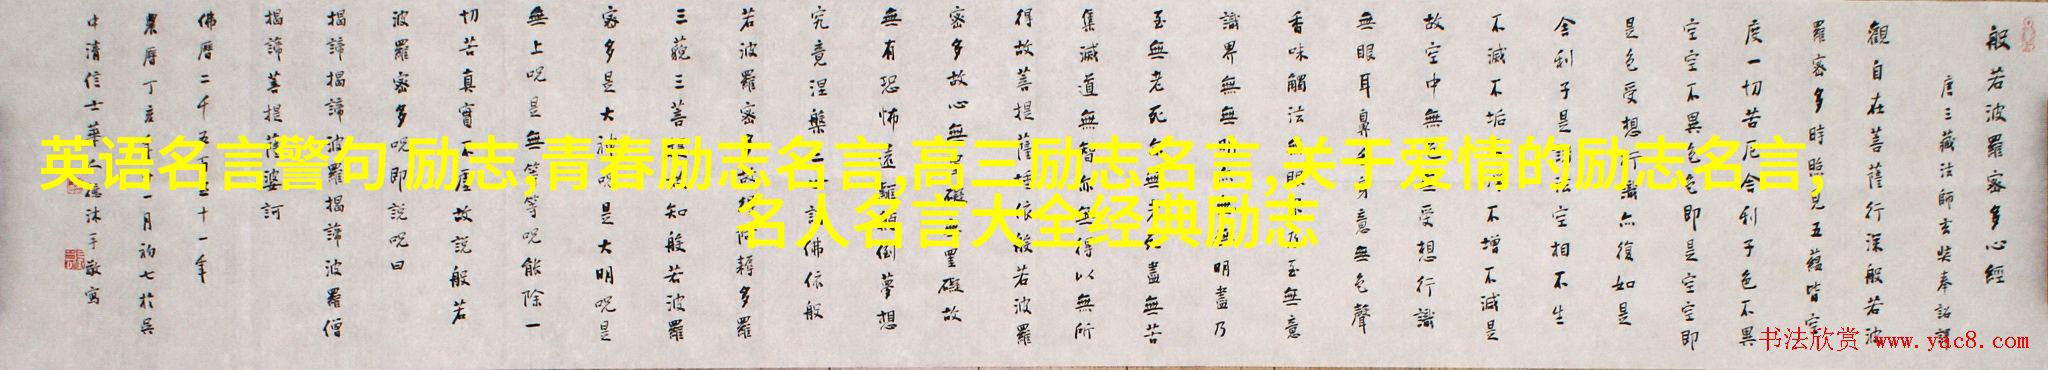 英语名言警句 励志,青春励志名言,高三励志名言,关于爱情的励志名言,
名人名言大全经典励志
般若波羅密多心經
唐三藏法師玄奘奉詔譯
觀自在菩薩行深般若波
羅密多時照見五蘊皆空
度一切苦厄舍利子色不異
空空不異色色即是空空即
是色受想行識亦復如是
舍利子是諸法空相不生
不滅不垢不淨不增不減是
故空中無色無受想行識
無眼耳鼻舌身意無色聲
香味觸法無眼界乃至無意
識界無無明亦無無明盡乃
至無老死亦無老死盡無苦
集滅道無智亦無得以無所
得故菩提薩埵依般若波羅
密多故心無罣礙無罣礙故
無有恐怖遠離顛倒夢想
究竟涅槃三世諸佛依般
若波羅密多故得阿耨多羅
三藐三菩提故知般若波羅
密多是大神呪是大明呪是
無上呪是無等等呪能除一
切苦真實不虛故說般若
波羅密多呪即說呪曰
揭諦揭諦波羅揭諦波羅僧
揭諦菩提薩婆訶
佛曆二千五百五十一年
農曆丁亥年十一月初七於吳
中清信士華人德沐手敬寫
书法欣赏 www.yac8.com